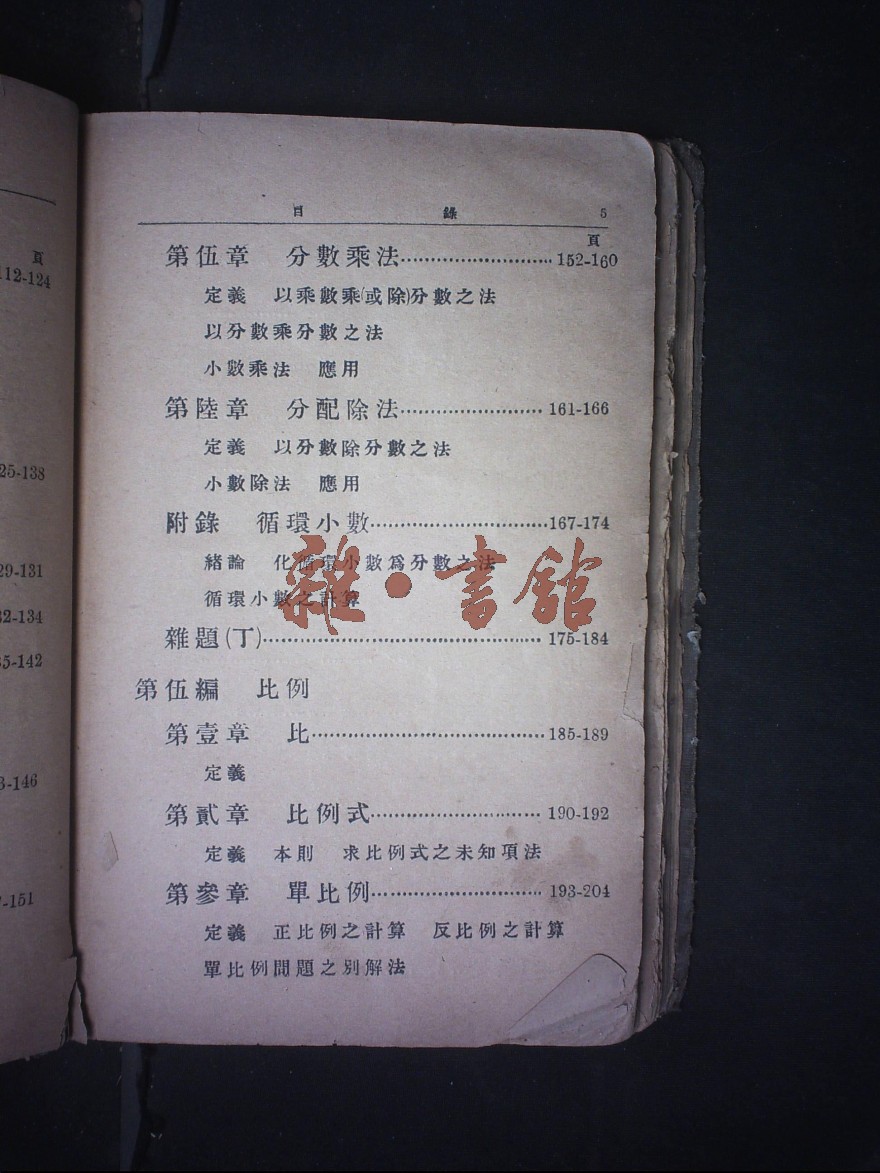 頁
112-124
25-138
29-131
32-134
35-142
3-146
7-151
目 錄 5
頁
第伍章 分數乘法 152-160
定義 以乘數乘(或除)分數之法
以分數乘分數之法
小數乘法 應用
第陸章 分配除法 161-166
定義 以分數除分數之法
小數除法 應用
附錄 循環小數 167-174
緒論 化循環小數爲分數之法
循環小數之計算
雜·書舘
雜題(丁) 175-184
第伍編 比例
第壹章 比 185-189
定義
第貳章 比例式 190-192
定義 本則 求比例式之未知項法
第參章 單比例 193-204
定義 正比例之計算 反比例之計算
單比例問題之別解法